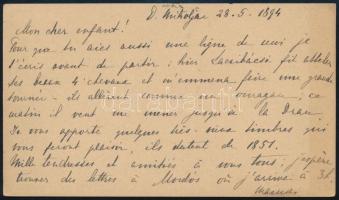 D. Miholjac 28-5-1894
Mon cher enfant!
Pour que tu aies aussi une ligne de moi je
t'écris avant de partir; hier fit atteler
ses beaux 4 chevaux et m'emmena faire une grande
tournée - ils allèrent comme un ouragan; ce
matin il veut me mener jusqu'à la Drau.
Je vous apporte quelques très vieux timbres qui
vous feront plaisir, ils datent de 1851.
Mille tendresses et amitiés à vous tous; j'espère
trouver des lettres à Mordos où j'arrive à 3h.
Maman